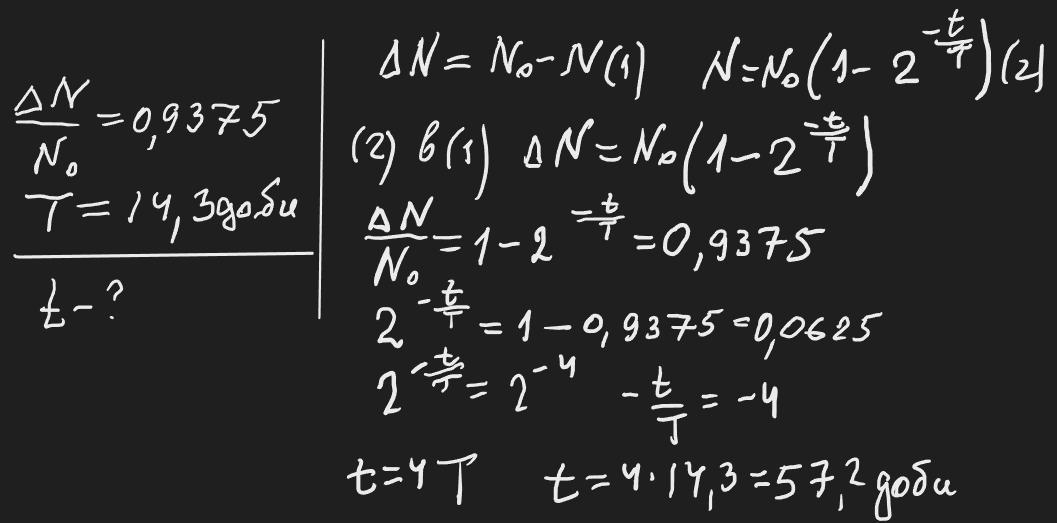 ΔN/N₀ = 0,9375
T = 14,3 доби
t - ?
ΔN = N₀ - N (1) N = N₀(1 - 2^(-t/T)) (2)
(2) в (1) ΔN = N₀(1 - 2^(-t/T))
ΔN/N₀ = 1 - 2^(-t/T) = 0,9375
2^(-t/T) = 1 - 0,9375 = 0,0625
2^(-t/T) = 2^(-4) -t/T = -4
t = 4T t = 4·14,3 = 57,2 доби